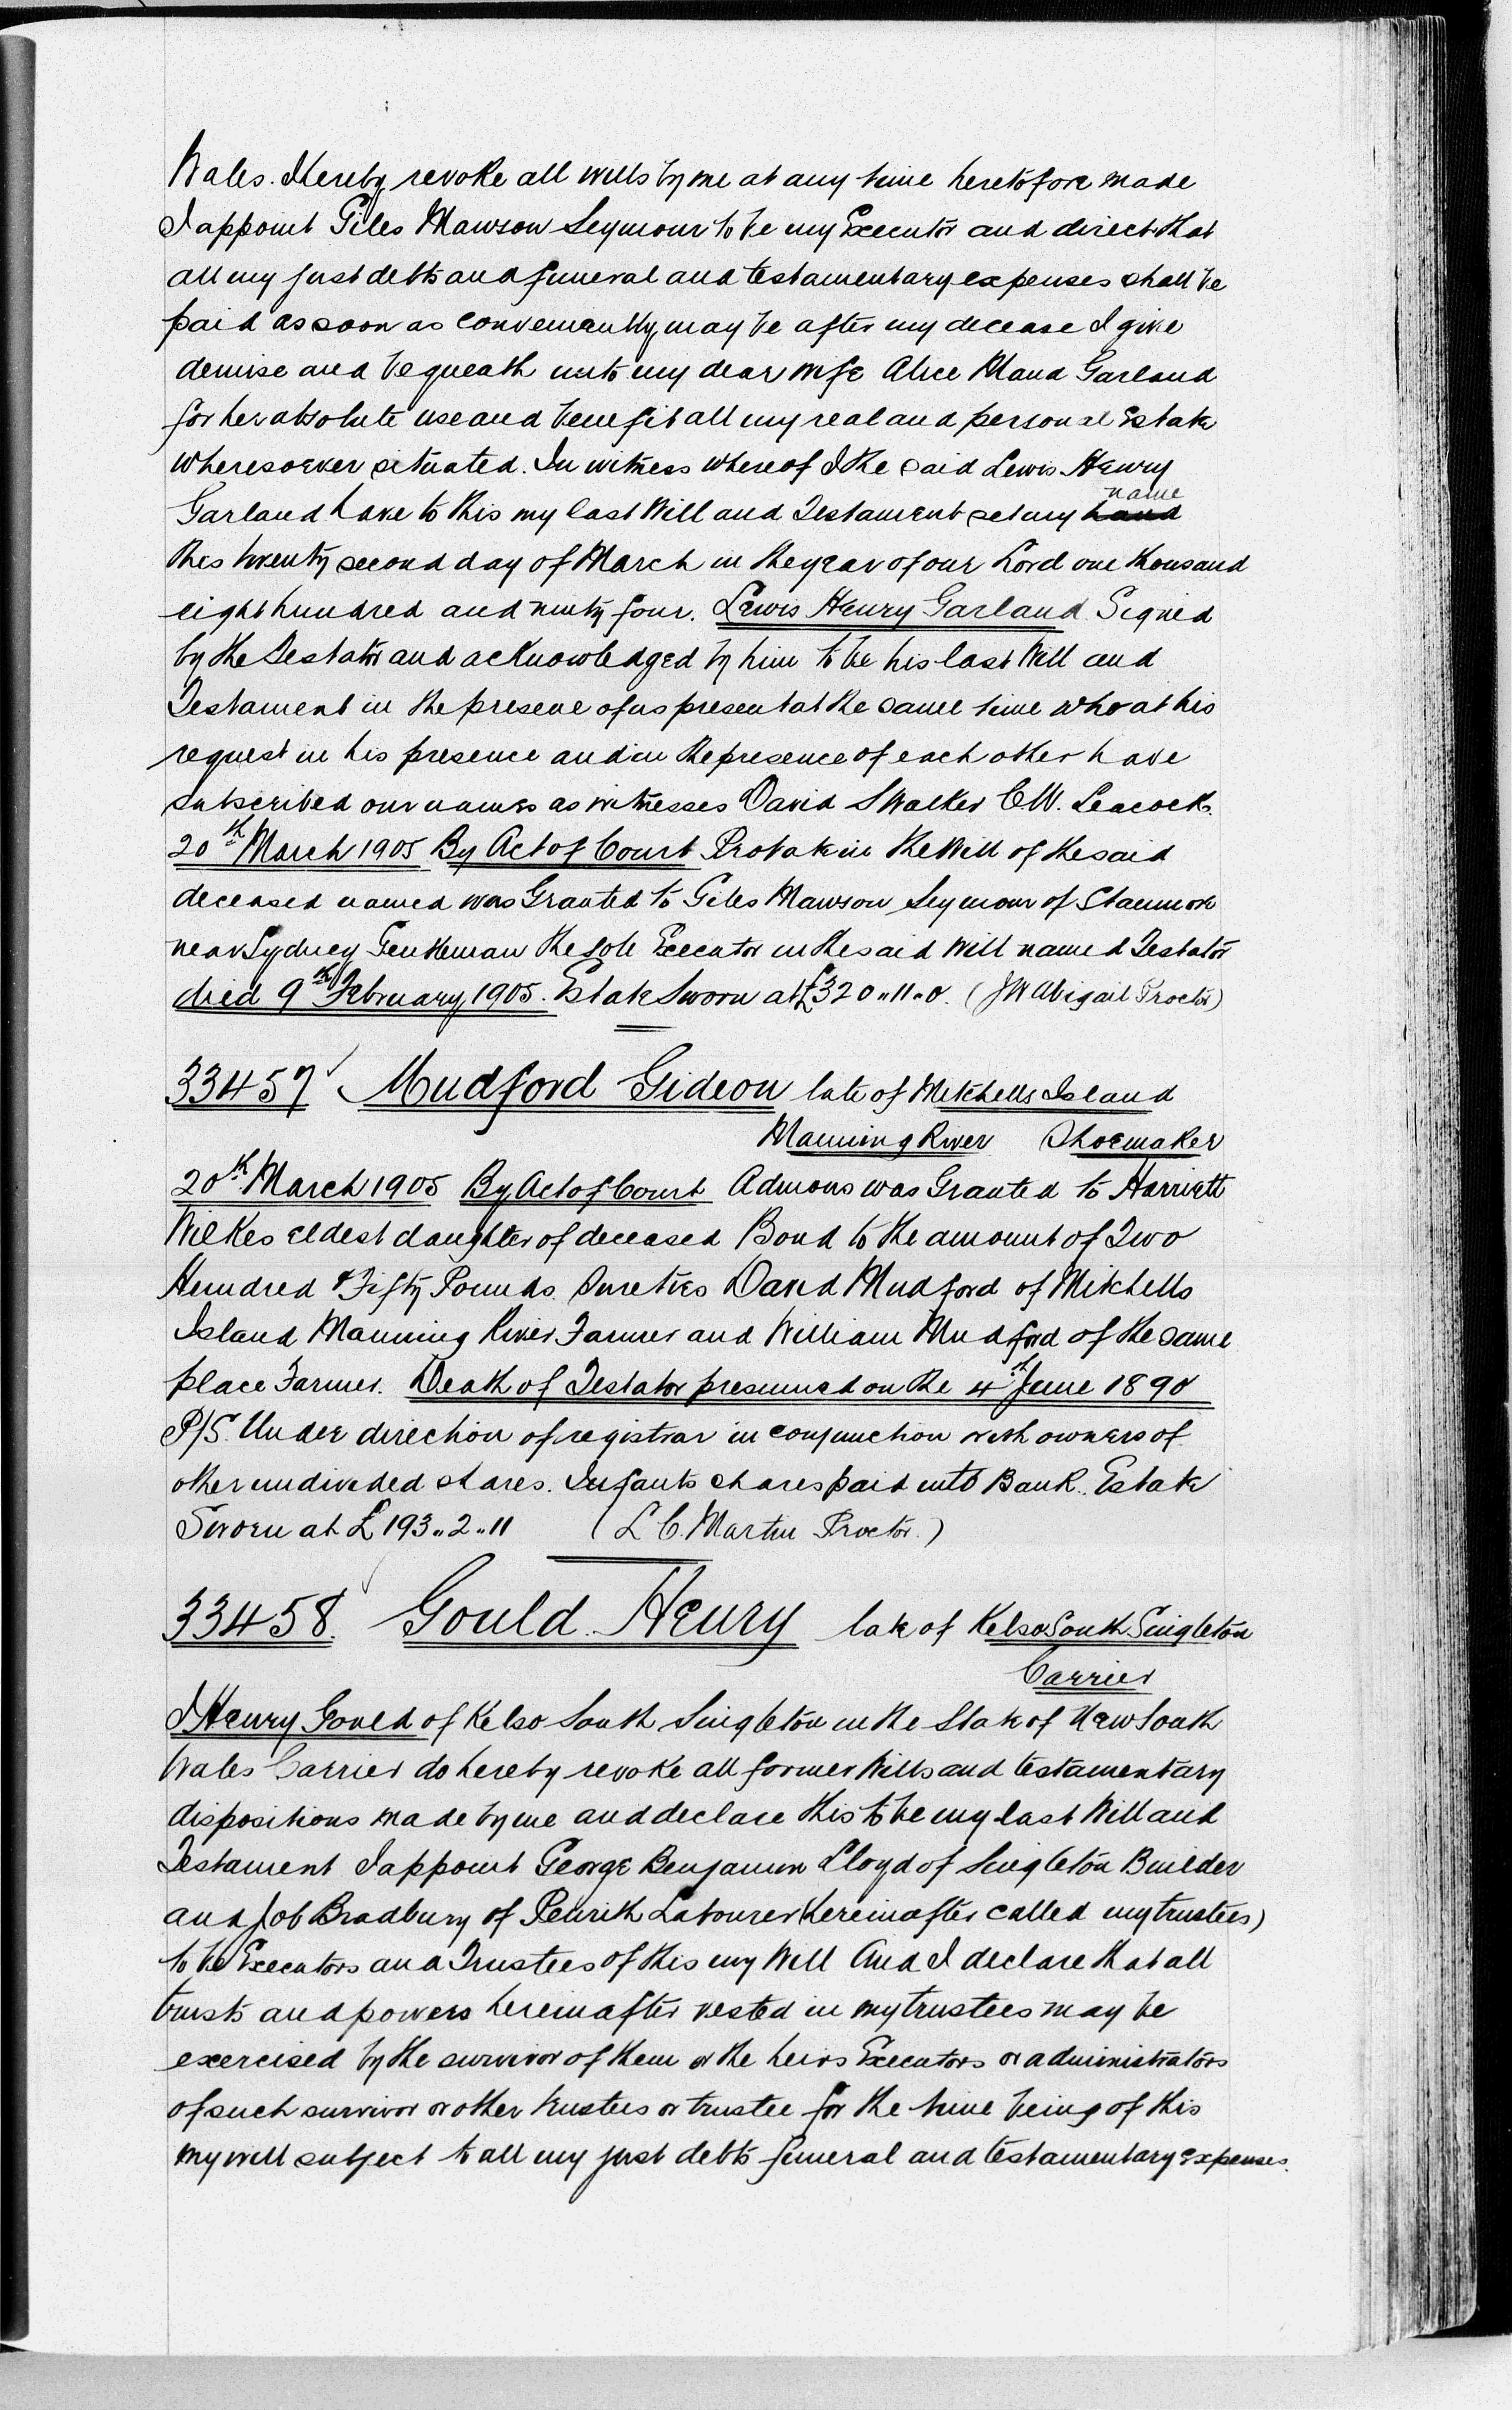 Wales. I hereby revoke all wills by me at any time heretofore made
I appoint Giles Mawson Seymour to be my Executor and direct that
all my just debts and funeral and testamentary expenses shall be
paid as soon as conveniently may be after my decease I give
demise and bequeath unto my dear wife Alice Maud Garland
for her absolute use and benefit all my real and personal Estate
wheresoever situated. In witness whereof I the said Lewis Henry
Garland have to this my last Will and Testament set my hand name
this twenty second day of March in the year of our Lord one thousand
eight hundred and ninety four. Lewis Henry Garland Signed
by the Testator and acknowledged by him to be his last Will and
Testament in the presence of us present at the same time who at his
request in his presence and in the presence of each other have
subscribed our names as witnesses David S Walker C.W. Leacock.
20th March 1905 By Act of Court Probate in the Will of the said
deceased named was Granted to Giles Mawson Seymour of Stanmore
near Sydney Gentleman the sole Executor in the said Will named Testator
died 9th February 1905. Estate Sworn at £320"11"0. (JW Abigail Proctor)
33457 Mudford Gideon late of Mitchells Island
Manning River Shoemaker
20th March 1905 By Act of Court Admons was Granted to Harriett
Wilkes eldest daughter of deceased Bond to the amount of Two
Hundred & Fifty Pounds. Sureties David Mudford of Mitchells
Island Manning River Farmer and William Mudford of the same
place Farmer. Death of Testator presumed on the 4th June 1890
P/S. Under direction of registrar in conjunction with owners of
other undivided shares. Infants shares paid into Bank. Estate
Sworn at £193"2"11 (L C. Martin Proctor.)
33458. Gould Henry late of Kelso South Singleton
Carrier
I Henry Gould of Kelso South Singleton in the State of New South
Wales Carrier do hereby revoke all former Wills and testamentary
dispositions made by me and declare this to be my last Will and
Testament I appoint George Benjamin Lloyd of Singleton Builder
and Job Bradbury of Penrith Labourer (hereinafter called my trustees)
to be Executors and Trustees of this my Will And I declare that all
trusts and powers hereinafter vested in my trustees may be
exercised by the survivor of them or the heirs Executors or administrators
of such survivor or other trustees or trustee for the time being of this
my will subject to all my just debts funeral and testamentary expenses.